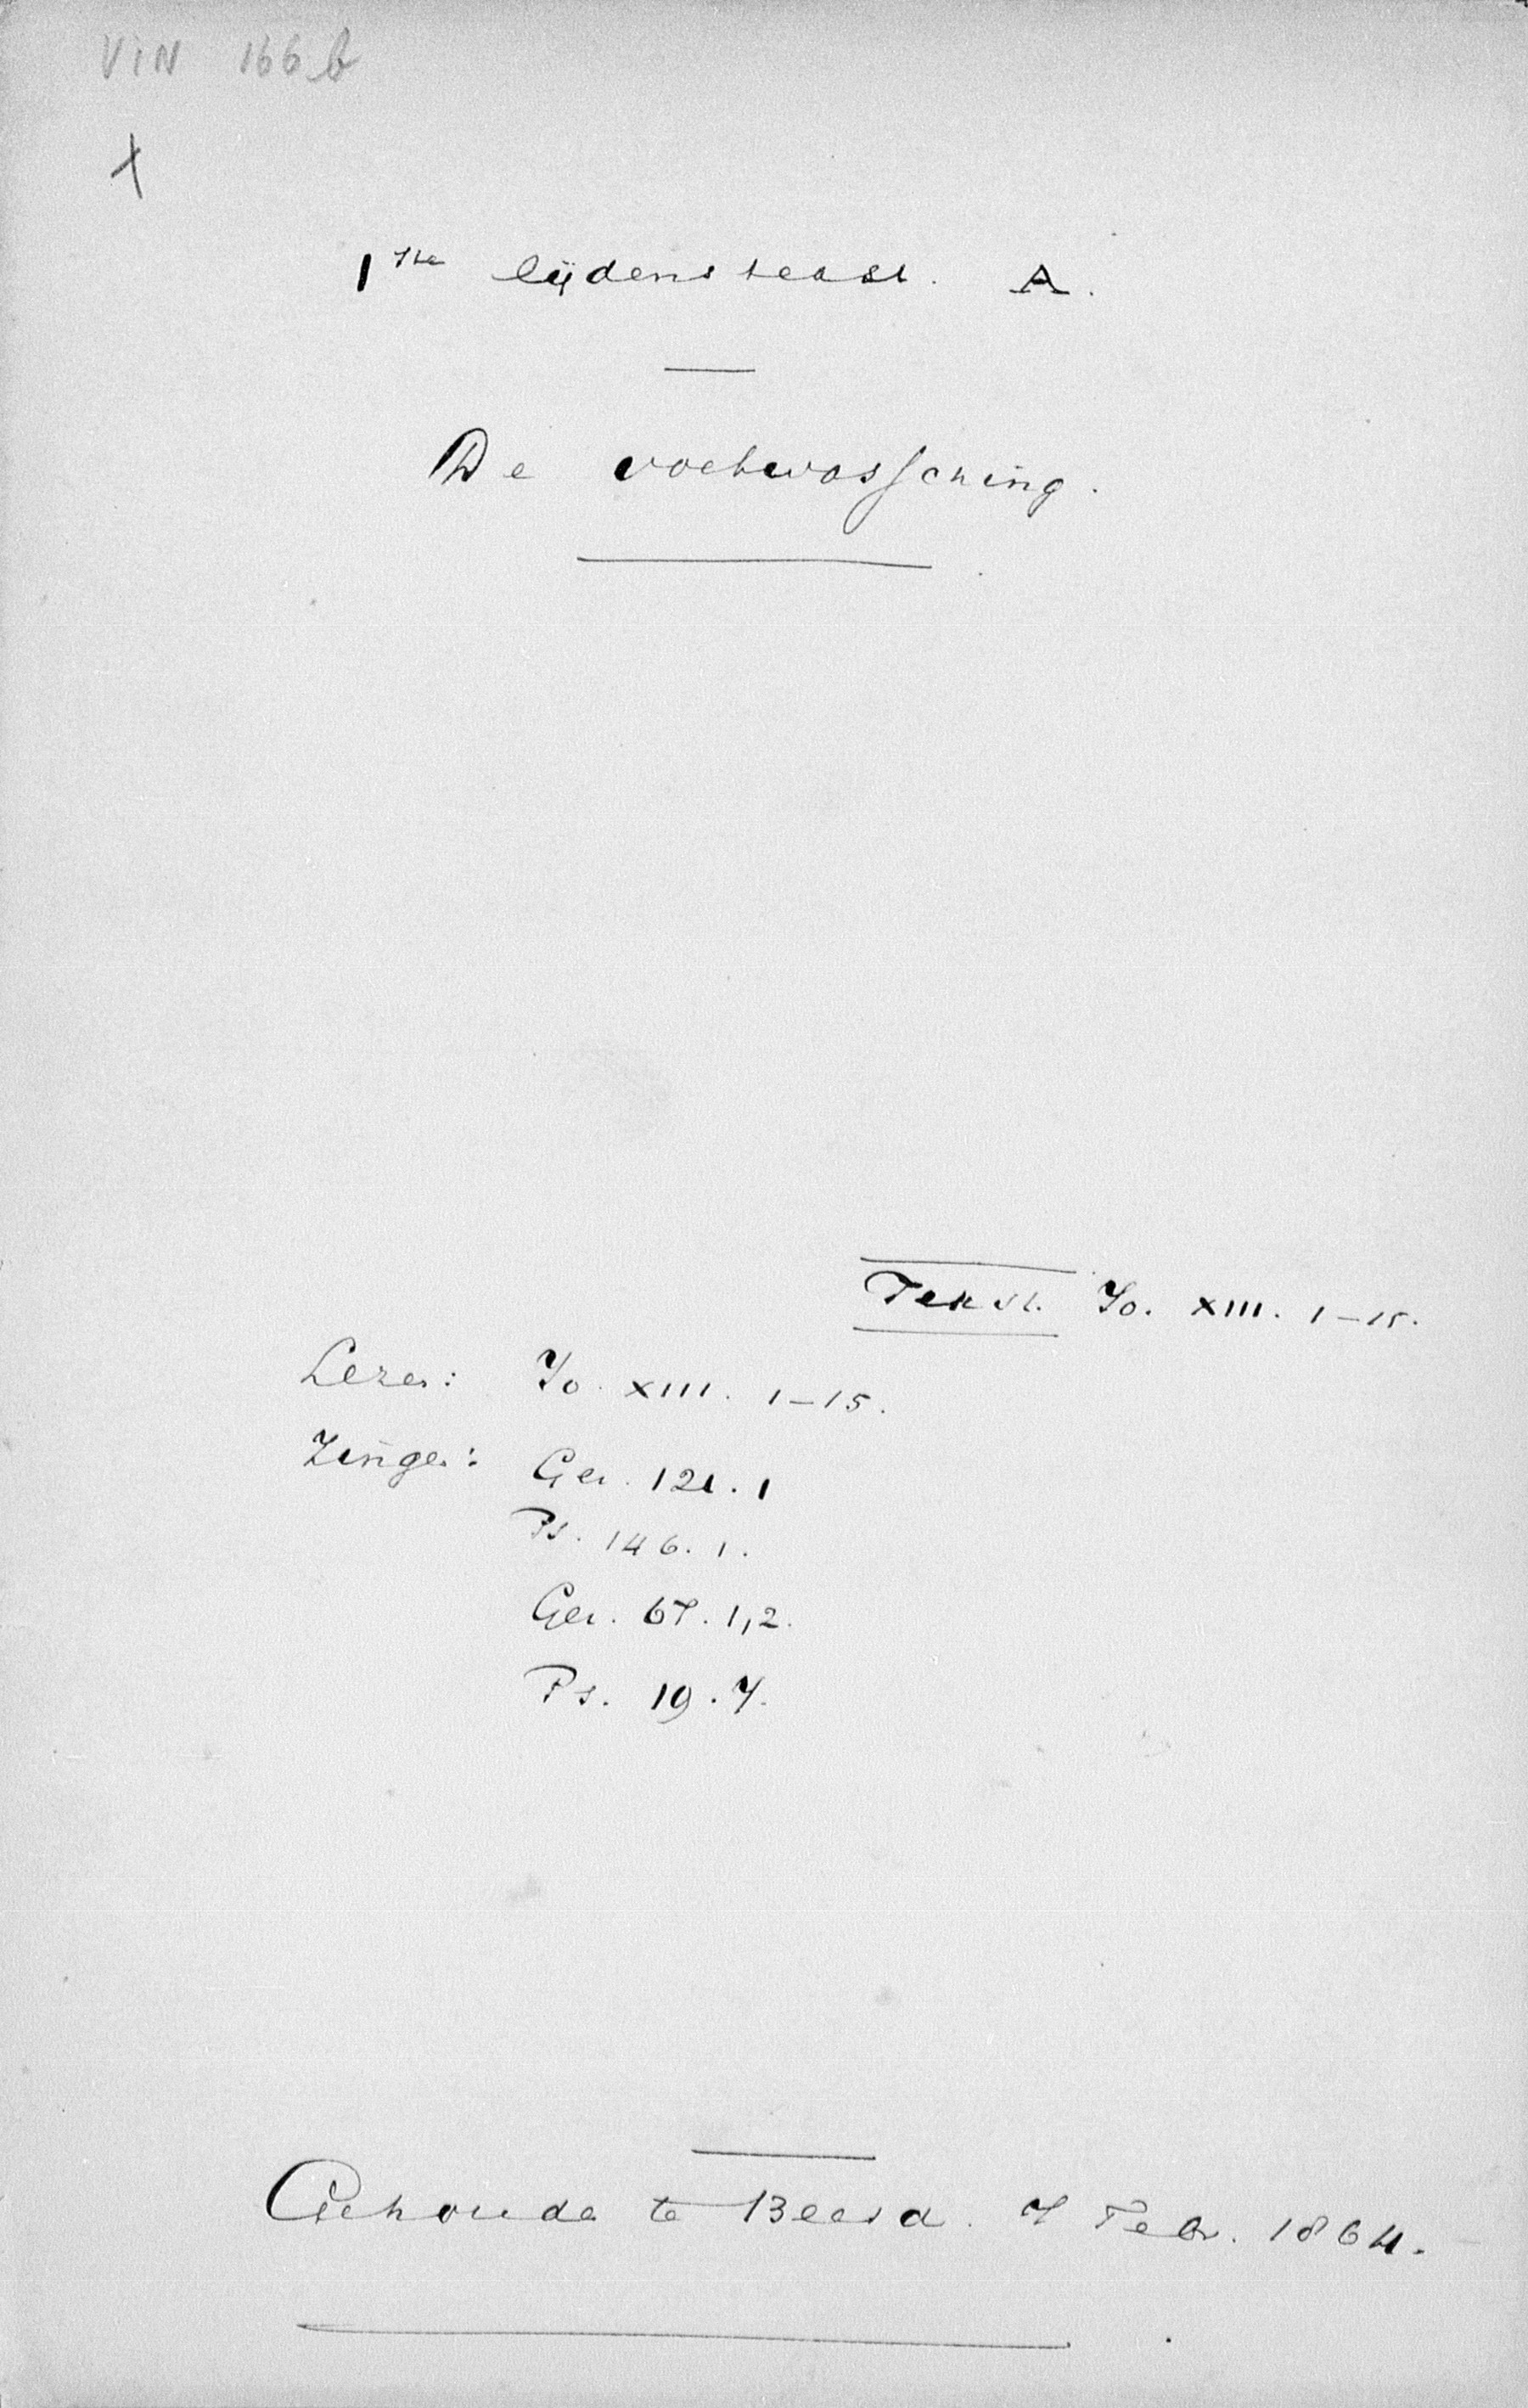 VIN 166b
X
1ste lijdenstekst. A.
De voetwassching.
Tekst. Jo. XIII. 1-15.
Leze: Jo. XIII. 1-15.
Zinge: Gez. 121. 1
Ps. 146. 1.
Gez. 67. 1,2.
Ps. 19. 7.
Gehoude te Beesd. 7 Febr. 1864.